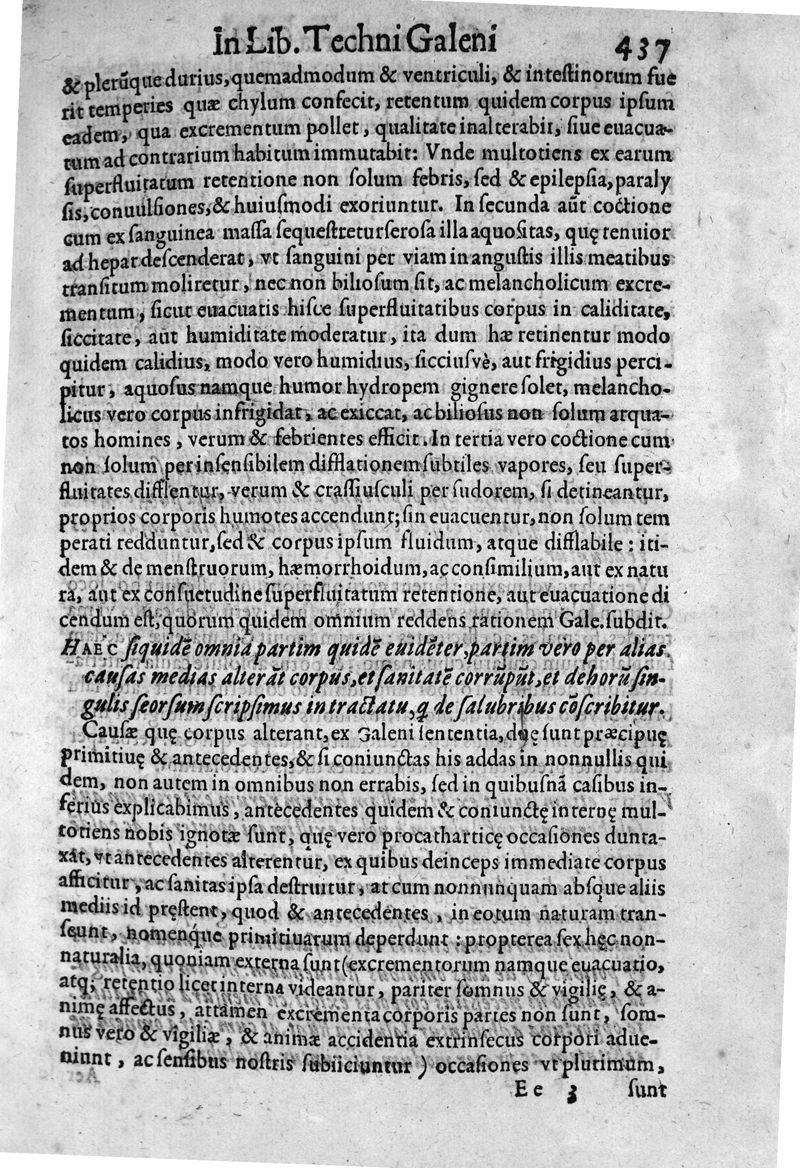 In Lib. Techni Galeni 437
& plerũque durius, quemadmodum & ventriculi, & inteſtinorum fue
rit temperies quæ chylum confecit, retentum quidem corpus ipſum
eadem, qua excrementum pollet, qualitate inalterabit, ſiue euacua-
tum ad contrarium habitum immutabit: Vnde multotiens ex earum
ſuperfluitatum retentione non ſolum febris, ſed & epilepſia, paraly
ſis, conuulſiones, & huiuſmodi exoriuntur. In ſecunda aũt coctione
cum ex ſanguinea maſſa ſequeſtretur ſeroſa illa aquoſitas, quę tenuior
ad hepar deſcenderat, vt ſanguini per viam in anguſtis illis meatibus
tranſitum moliretur, nec non bilioſum ſit, ac melancholicum excre-
mentum, ſicut euacuatis hiſce ſuperfluitatibus corpus in caliditate,
ſiccitate, aut humiditate moderatur, ita dum hæ retinentur modo
quidem calidius, modo vero humidius, ſicciuſvè, aut frigidius perci-
pitur, aquoſus namque humor hydropem gignere ſolet, melancho-
licus vero corpus infrigidat, ac exiccat, ac bilioſus non ſolum arqua-
tos homines, verum & febrientes efficit. In tertia vero coctione cum
non ſolum per inſenſibilem difflationem ſubtiles vapores, ſeu ſuper-
fluitates difflentur, verum & craſſiuſculi per ſudorem, ſi detineantur,
proprios corporis humotes accendunt; ſin euacuentur, non ſolum tem
perati redduntur, ſed & corpus ipſum fluidum, atque difflabile: iti-
dem & de menſtruorum, hæmorrhoidum, ac conſimilium, aut ex natu
ra, aut ex conſuetudine ſuperfluitatum retentione, aut euacuatione di
cendum eſt, quorum quidem omnium reddens rationem Gale. ſubdit.
HAEC ſiquidẽ omnia partim quidẽ euidẽter, partim vero per alias
cauſas medias alterãt corpus, et ſanitatẽ corrũpũt, et de horũ ſin-
gulis ſeorſum ſcripſimus in tractatu, q de ſalubribus cõſcribitur.
Cauſæ quę corpus alterant, ex Galeni ſententia, duę ſunt præcipuę
primitiuę & antecedentes, & ſi coniunctas his addas in nonnullis qui
dem, non autem in omnibus non errabis, ſed in quibuſnã caſibus in-
ferius explicabimus, antecedentes quidem & coniunctę internę mul-
totiens nobis ignotæ ſunt, quę vero procatharticę occaſiones dunta-
xat, vt antecedentes alterentur, ex quibus deinceps immediate corpus
afficitur, ac ſanitas ipſa deſtruitur, at cum nonnunquam abſque aliis
mediis id pręſtent, quod & antecedentes, in eotum naturam tran-
ſeunt, nomenque primitiuarum deperdunt: propterea ſex hęc non-
naturalia, quoniam externa ſunt (excrementorum namque euacuatio,
atq; retentio licet interna videantur, pariter ſomnus & vigilię, & a-
nimę affectus, attamen excrementa corporis partes non ſunt, ſom-
nus vero & vigiliæ, & animæ accidentia extrinſecus corpori adue-
niunt, ac ſenſibus noſtris ſubiiciuntur) occaſiones vt plutimum,
Ee 3 ſunt